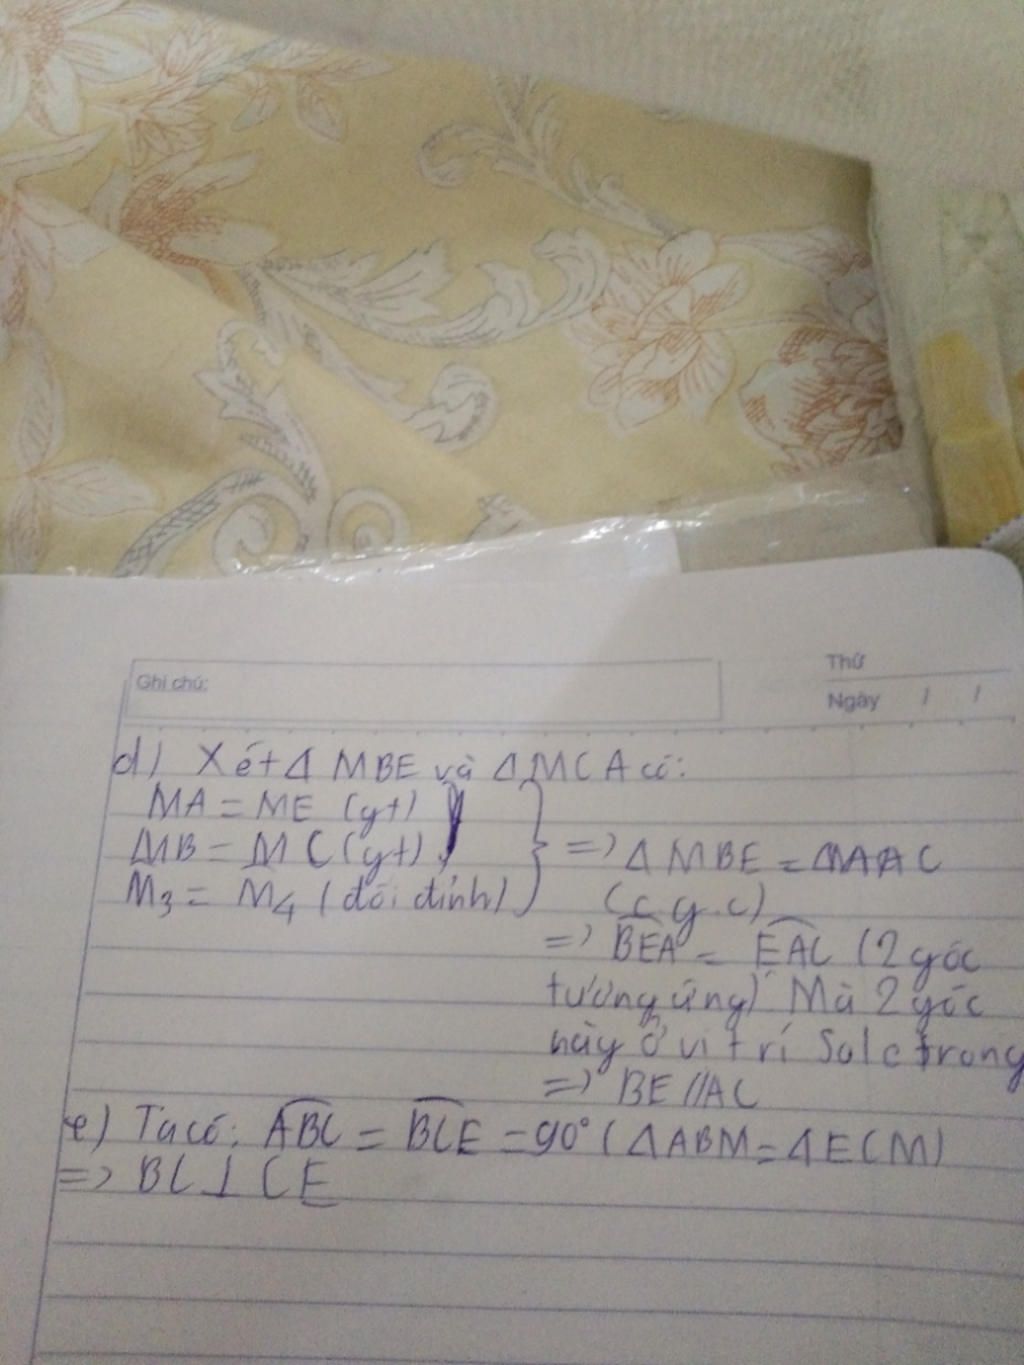 Ghi chú:
Thứ
Ngày / /
d) Xét Δ MBE và Δ MCA có:
MA = ME (gt)
MB = MC (gt)
M3 = M4 (đối đỉnh)
=> Δ MBE =
(c.g.c)
=> BEA = EAC (2 góc
tương ứng) Mà 2 góc
này ở vị trí Sole trong
=> BE // AC
e) Ta có: ABC = BCE = 90° (ΔABM = ΔECM)
=> BC ⊥ CE